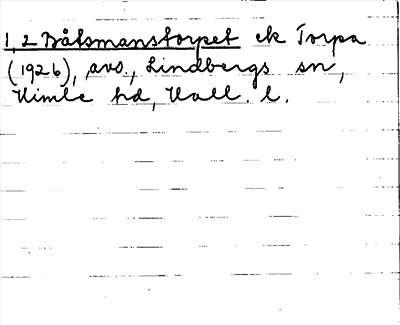 1, 2 Båtsmanstorpet ek Torpa
(1926), avs., Lindbergs sn,
Himle hd, Hall. l.